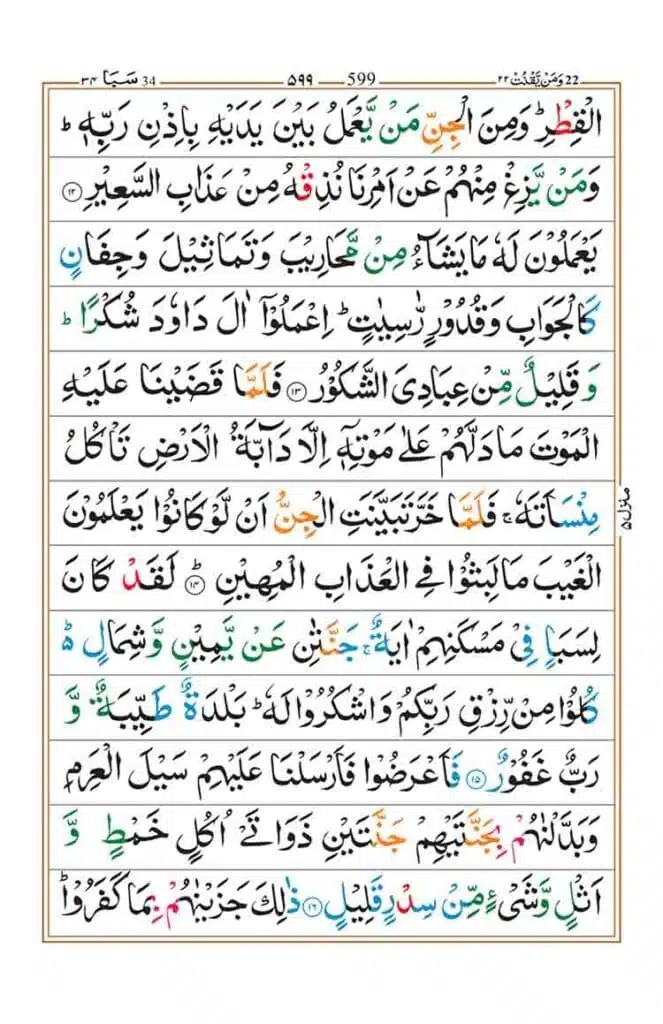 ٣٤ سَبَا 34 ٥٩٩ 599 وَمَنْ يَّقْنُتْ ٢٢ 22
الْقِطْرِ ؕ وَمِنَ الْجِنِّ مَنْ يَّعْمَلُ بَيْنَ يَدَيْهِ بِاِذْنِ رَبِّهٖ ؕ
وَمَنْ يَّزِغْ مِنْهُمْ عَنْ اَمْرِنَا نُذِقْهُ مِنْ عَذَابِ السَّعِيْرِ ۝١٢
يَعْمَلُوْنَ لَهٗ مَا يَشَآءُ مِنْ مَّحَارِيْبَ وَتَمَاثِيْلَ وَجِفَانٍ
كَالْجَوَابِ وَقُدُوْرٍ رّٰسِيٰتٍ ؕ اِعْمَلُوْۤا اٰلَ دَاوٗدَ شُكْرًا ؕ
وَقَلِيْلٌ مِّنْ عِبَادِيَ الشَّكُوْرُ ۝١٣ فَلَمَّا قَضَيْنَا عَلَيْهِ
الْمَوْتَ مَا دَلَّهُمْ عَلٰى مَوْتِهٖۤ اِلَّا دَآبَّةُ الْاَرْضِ تَاْكُلُ
مِنْسَاَتَهٗ ۚ فَلَمَّا خَرَّ تَبَيَّنَتِ الْجِنُّ اَنْ لَّوْ كَانُوْا يَعْلَمُوْنَ
الْغَيْبَ مَا لَبِثُوْا فِي الْعَذَابِ الْمُهِيْنِ ۝١٤ؕ لَقَدْ كَانَ
لِسَبَاٍ فِيْ مَسْكَنِهِمْ اٰيَةٌ ۚ جَنَّتٰنِ عَنْ يَّمِيْنٍ وَّشِمَالٍ ؕ۬
كُلُوْا مِنْ رِّزْقِ رَبِّكُمْ وَاشْكُرُوْا لَهٗ ؕ بَلْدَةٌ طَيِّبَةٌ وَّ
رَبٌّ غَفُوْرٌ ۝١٥ فَاَعْرَضُوْا فَاَرْسَلْنَا عَلَيْهِمْ سَيْلَ الْعَرِمِ
وَبَدَّلْنٰهُمْ بِجَنَّتَيْهِمْ جَنَّتَيْنِ ذَوَاتَيْ اُكُلٍ خَمْطٍ وَّ
اَثْلٍ وَّشَيْءٍ مِّنْ سِدْرٍ قَلِيْلٍ ۝١٦ ذٰلِكَ جَزَيْنٰهُمْ بِمَا كَفَرُوْا ؕ
منزل ٥